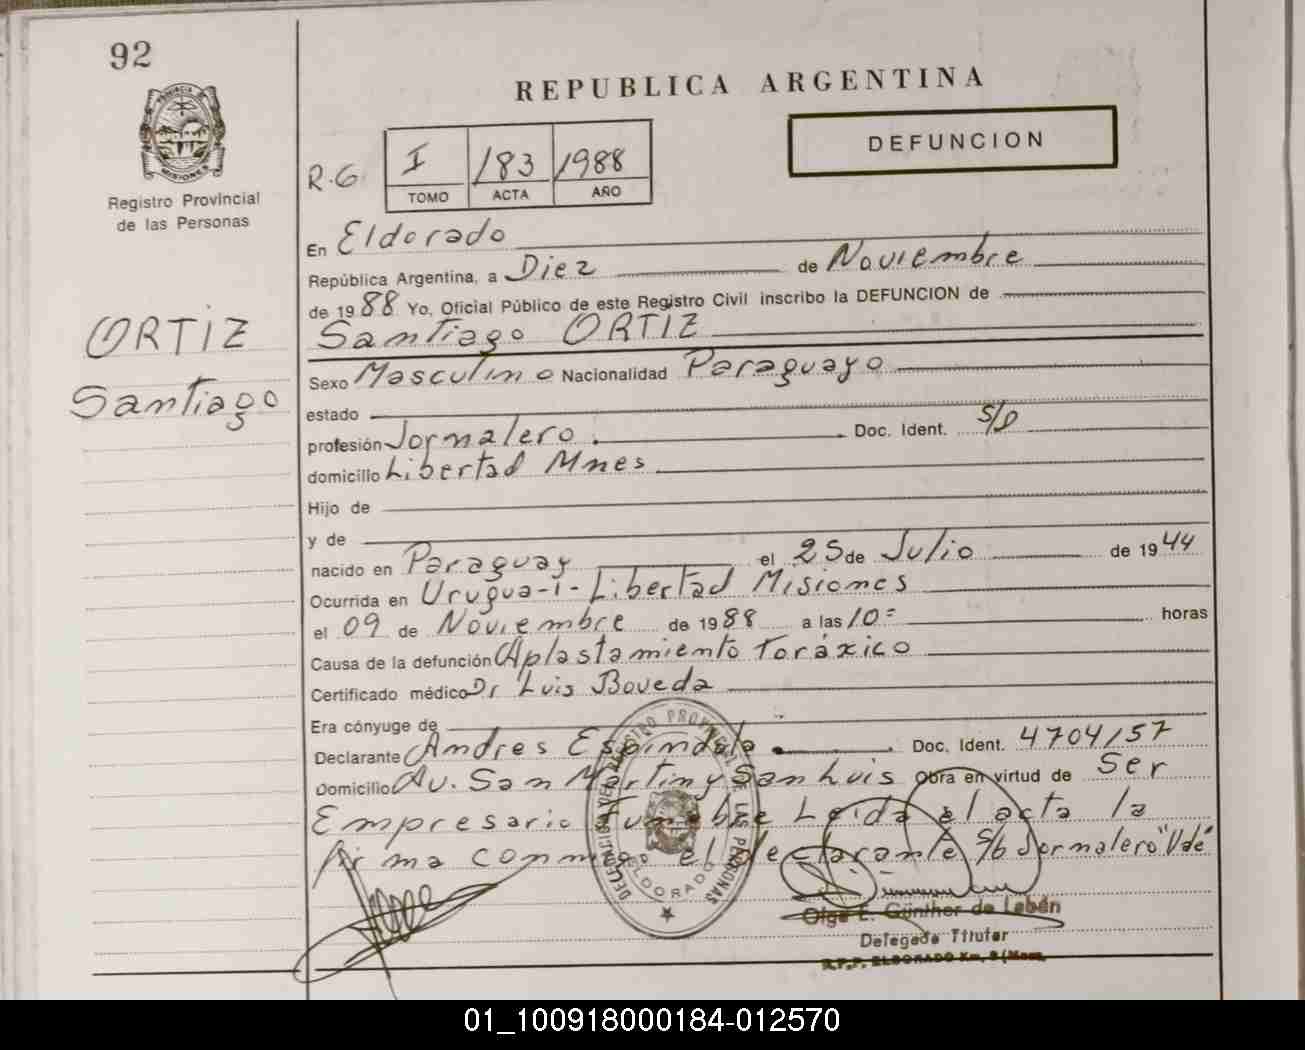 92
REPUBLICA ARGENTINA
DEFUNCION
PROVINCIA DE MISIONES
Registro Provincial
de las Personas
R.G I 183 1988
TOMO ACTA AÑO
En Eldorado
República Argentina, a Diez de Noviembre
de 1988 Yo, Oficial Público de este Registro Civil inscribo la DEFUNCION de
ORTIZ
Santiago
Santiago ORTIZ
Sexo Masculino Nacionalidad Paraguayo
estado
profesión Jornalero. Doc. Ident. S/D
domicilio Libertad Mnes
Hijo de
y de
nacido en Paraguay el 25 de Julio de 1944
Ocurrida en Urugua-i- Libertad Misiones
el 09 de Noviembre de 1988 a las 10= horas
Causa de la defunción Aplastamiento Toráxico
Certificado médico Dr Luis Boveda
Era cónyuge de
Declarante Andres Espindola. Doc. Ident. 4704157
Domicilio Av. San Martin y San Luis Obra en virtud de Ser
Empresario Funebre Leida el acta la
firma conmigo el declarante S/b Jornalero "Vale"
DELEGACION DEL REGISTRO PROVINCIAL DE LAS PERSONAS
ELDORADO
Olga E. Günther de Lebán
Delegada Titular
R.P.P. ELDORADO Km. 9 (Mnes.
01_100918000184-012570